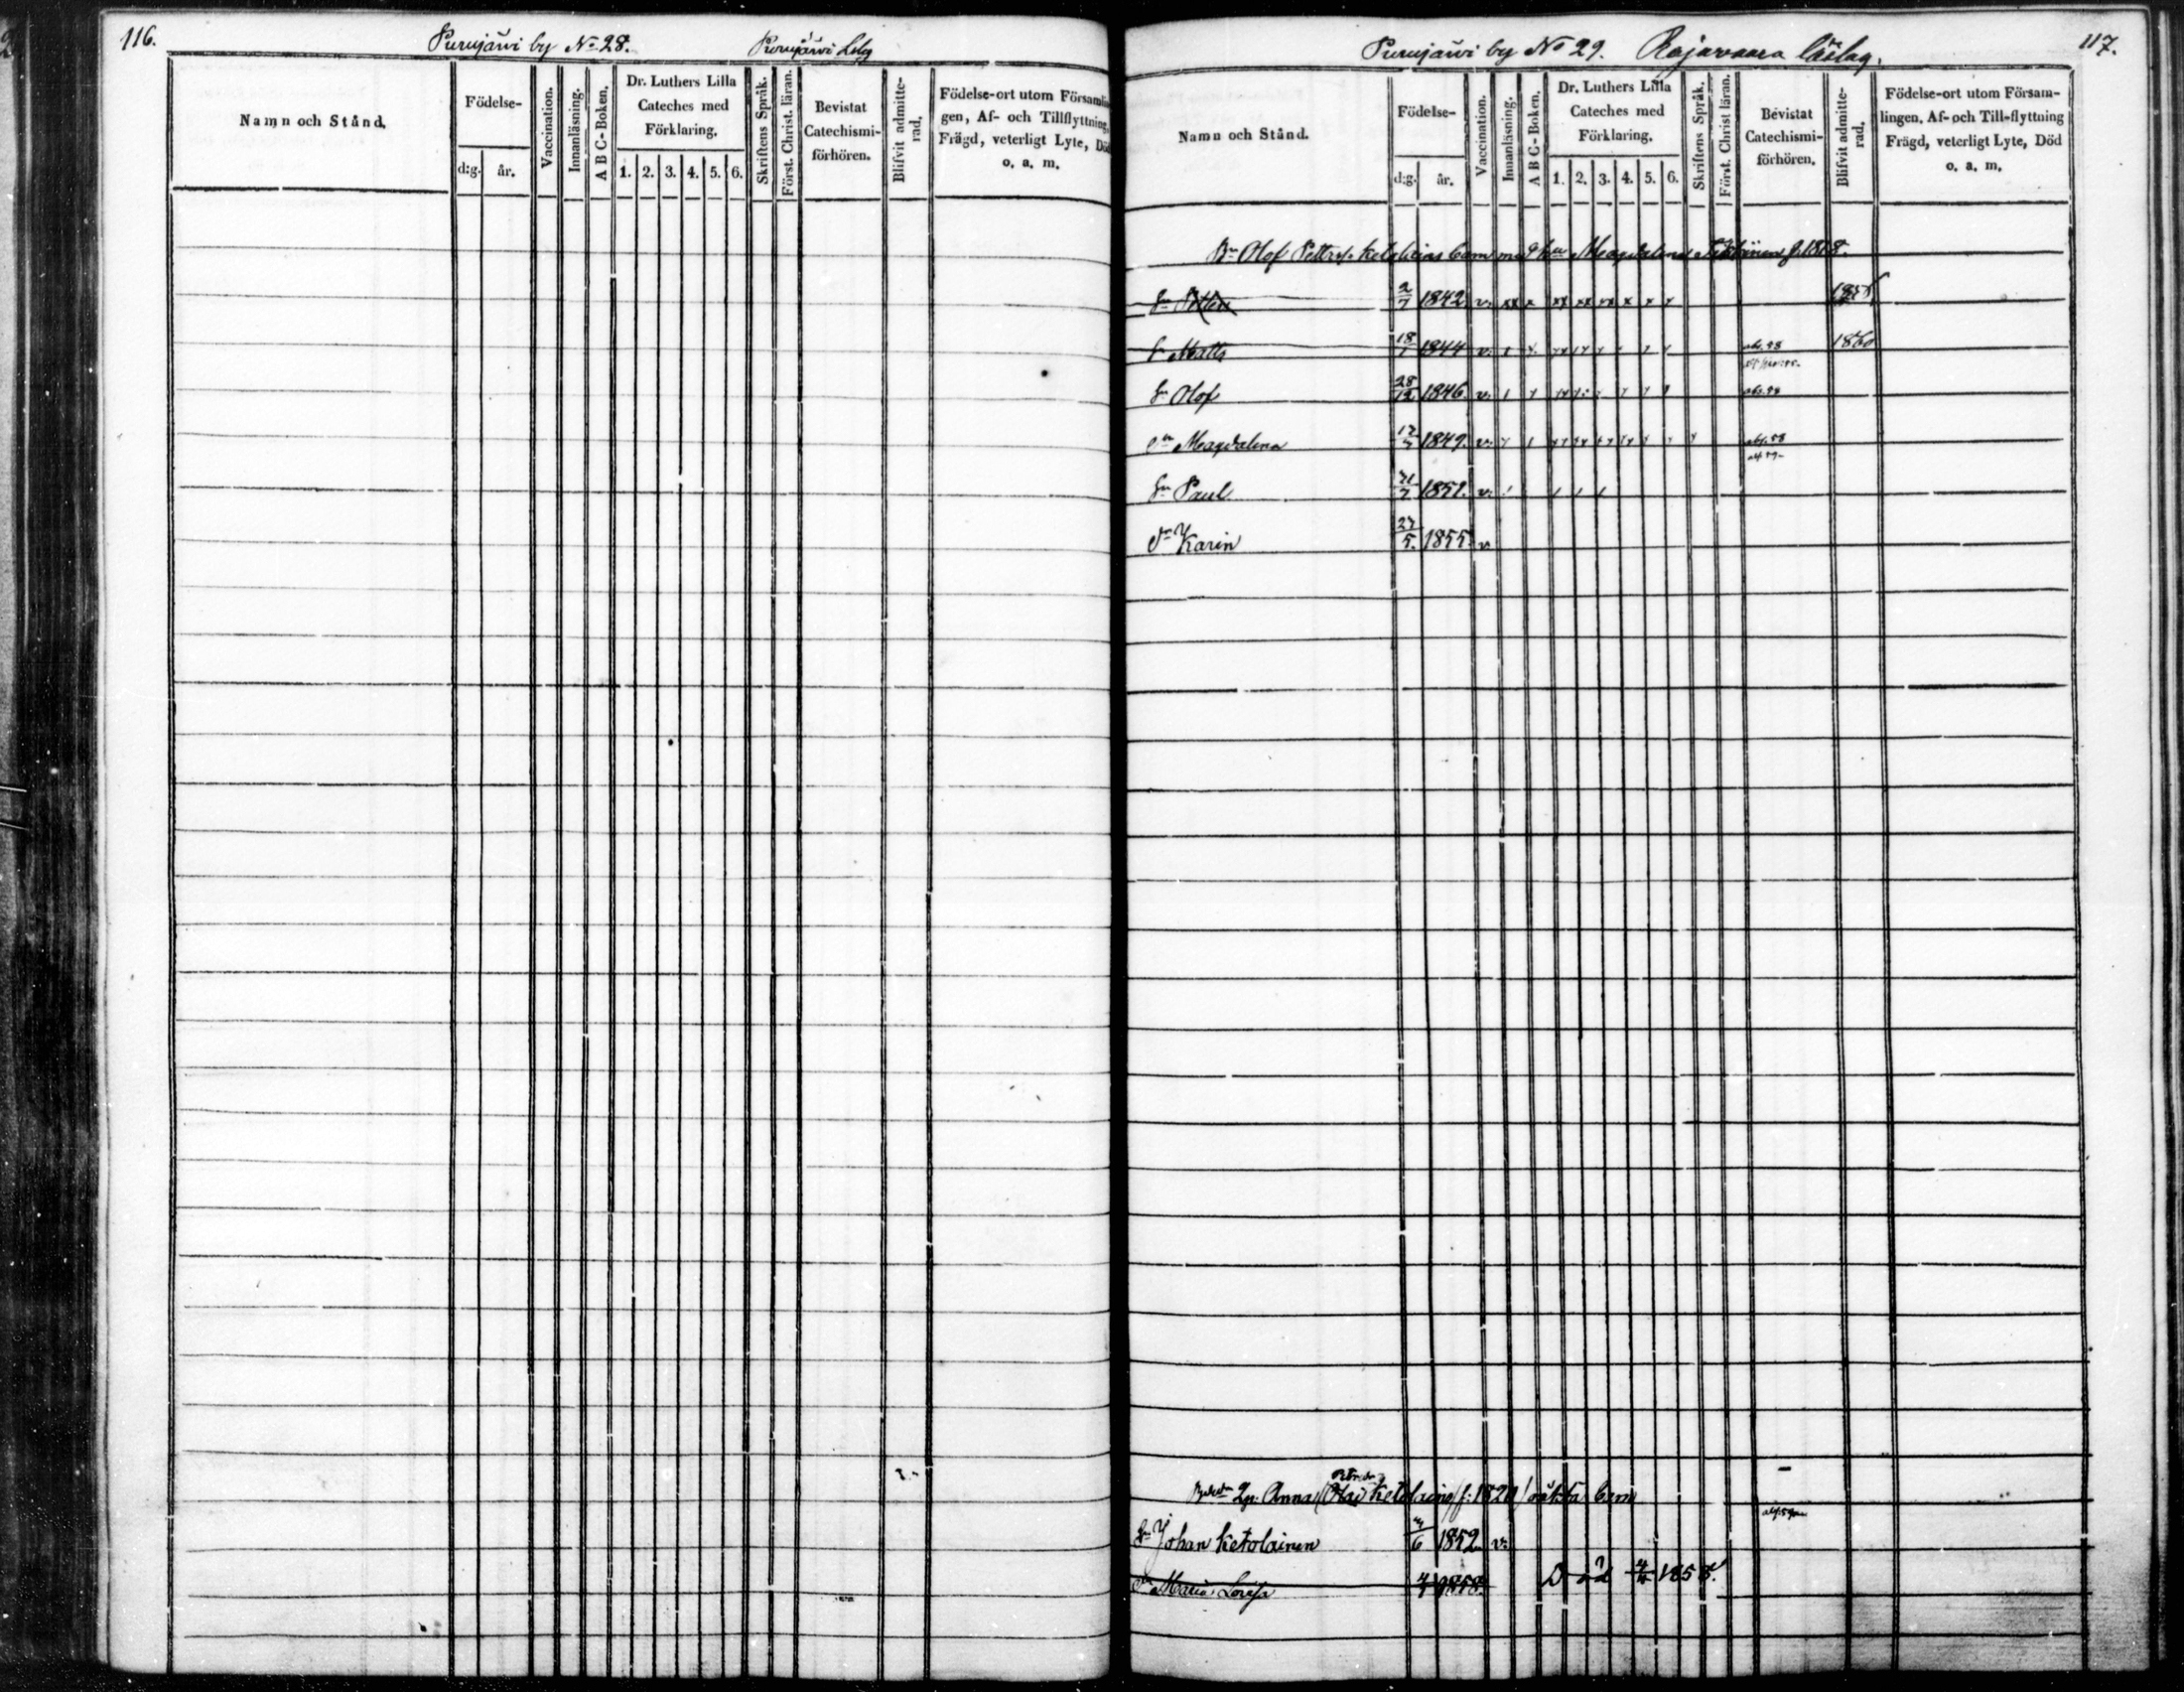 116.
Purujärvi by No 28.
Purujärvi Lslg
Namn och Stånd.
Födelse-
d:g. år.
Vaccination.
Innanläsning.
A B C-Boken.
Dr. Luthers Lilla
Cateches med
Förklaring.
1. 2. 3. 4. 5. 6.
Skriftens Språk.
Först. Christ. läran.
Bevistat
Catechismi-
förhören.
Blifvit admitte-
rad.
Födelse-ort utom Församlin
gen, Af- och Tillflyttning,
Frägd, veterligt Lyte, Död
o. a. m.
117.
Purujärvi by No 29. Rajavaara läslag.
Namn och Stånd.
Födelse-
d:g. år.
Vaccination.
Innanläsning.
A B C-Boken.
Dr. Luthers Lilla
Cateches med
Förklaring.
1. 2. 3. 4. 5. 6.
Skriftens Språk.
Först. Christ läran.
Bevistat
Catechismi-
förhören.
Blifvit admitte-
rad.
Födelse-ort utom Församlingen. Af- och Till-flyttning
Frägd, veterligt Lyte, Död
o. a. m.
Bn Olof Ketolains barn med hu Magdalena f. 1818.
Sn Petter 2/7 1842 v.
Sn Matts 18/1 1844 v. 1860
Sn Olof 28/12 1846. v.
Dr Magdalena 1849. v.
Sn Paul 1851. v.
Dr Karin 27/5. 1855. v
Anna Ketolains f: 1820 oäkta barn
Sn Johan Ketolainen 6 1852 v.
Dr Maria Lovisa 1858. Död 1858.